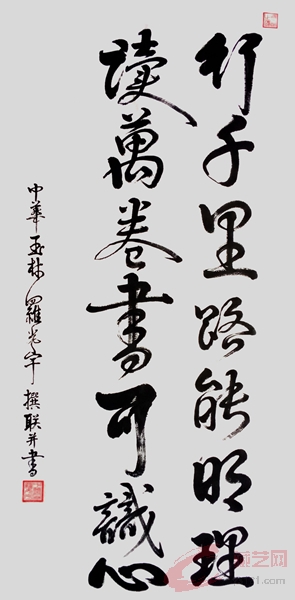 行千里路能明理
讀萬卷書可識心
中華玉林羅光宇撰联并書